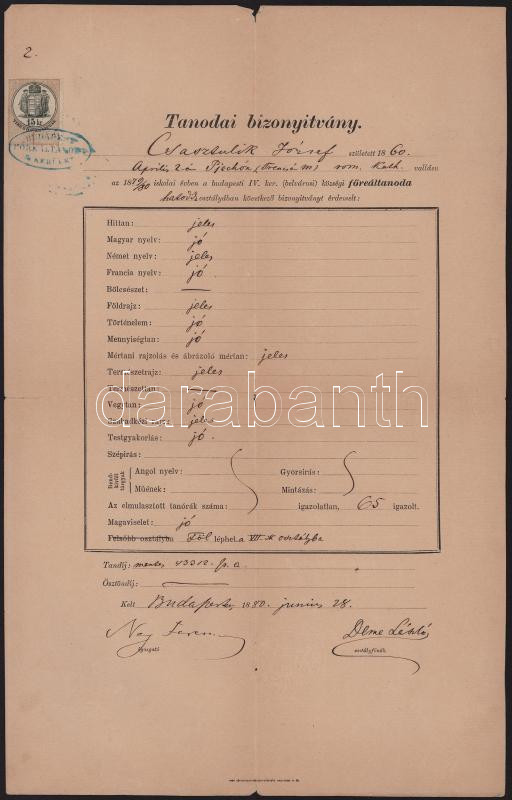 2.
15 kr
Tanodai bizonyitvány.
Csasztulik József született 1860.
Április 2án rom. Kath. vallásu
az 1879/80 iskolai évben a budapesti IV. ker. (belvárosi) községi főreáltanoda
hatodik osztályában következő bizonyitványt érdemelt:
Hittan: jeles
Magyar nyelv: jó
Német nyelv: jeles
Francia nyelv: jó
Bölcsészet: —
Földrajz: jeles
Történelem: jó
Mennyiségtan: jó
Mértani rajzolás és ábrázoló mértan: jeles
Természetrajz: jeles
Természettan: —
darabanth
Vegytan: jó
Szabadkézi rajz: jeles
Testgyakorlás: jó.
Szépirás:
Rendkivüli tárgyak
Angol nyelv: Gyorsirás:
Műének: Mintázás:
Az elmulasztott tanórák száma: igazolatlan, 65 igazolt.
Magaviselet: jó
Felsőbb osztályba Föl léphet a VII.ik osztályba
Tandij: mentes 43312. sz. a.
Ösztöndij: —
Kelt Budapesten, 1880. junius 28.
Ney Ferenc Deme László
igazgató osztályfőnök